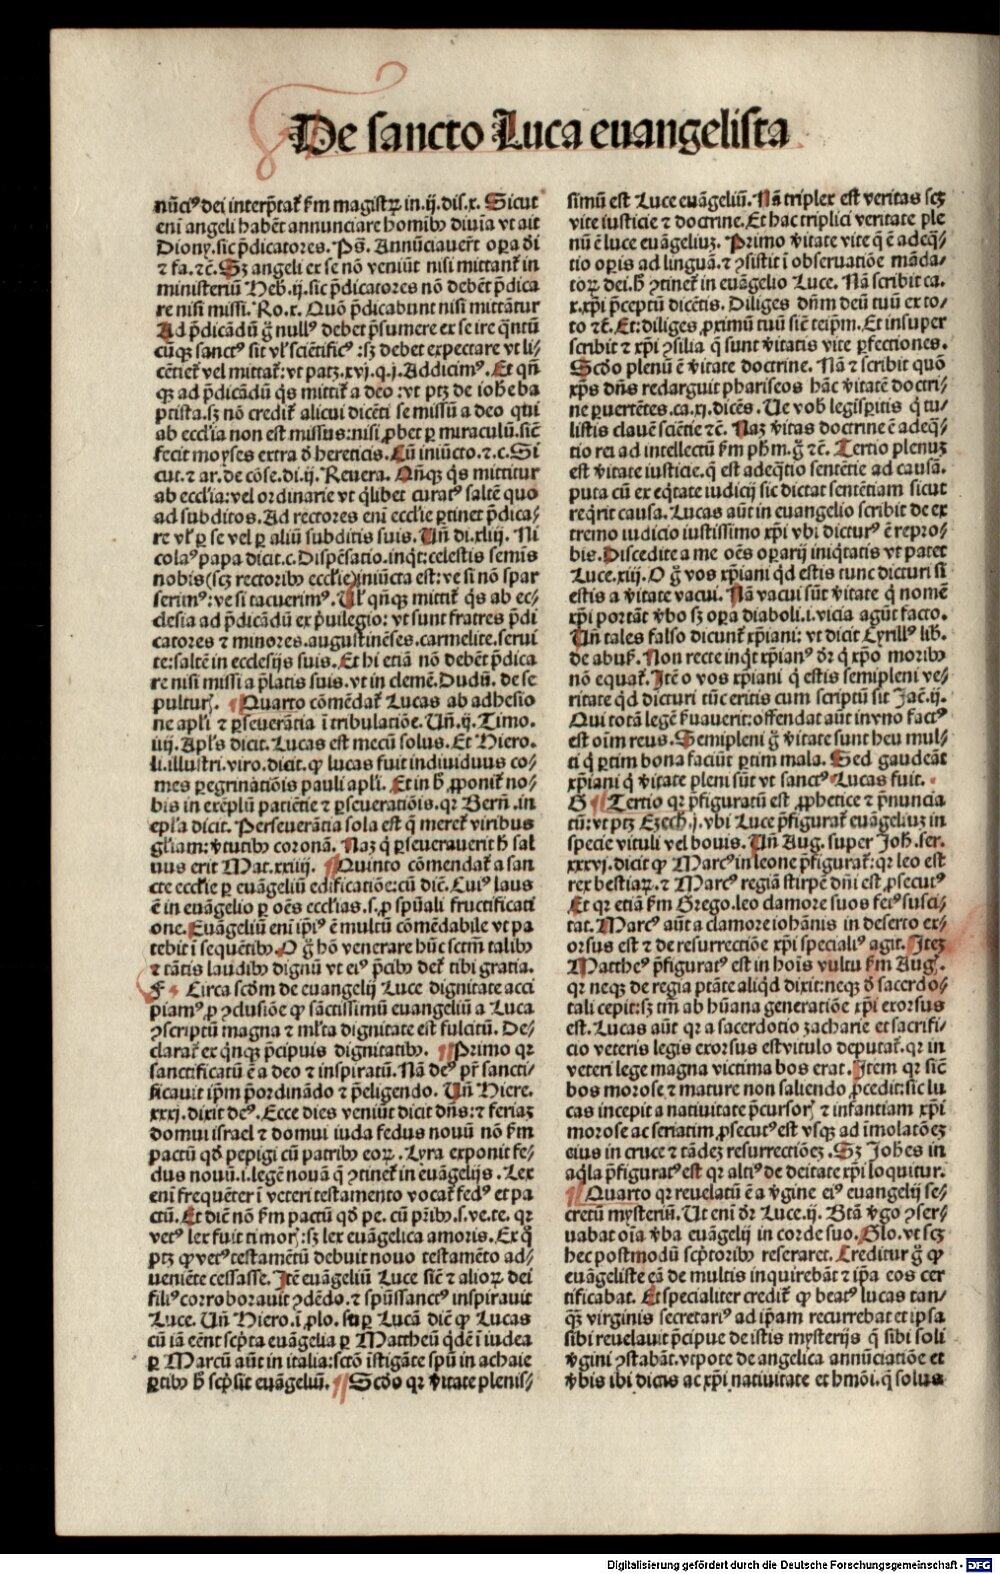 De sancto Luca euangelista
nūciꝰ dei interp̄tat̄ ẜm magistꝝ in.ij.dis.x. Sicut
eni angeli habēt annunciare homībꝰ diuīa vt ait
Diony.sic p̄dicatores. Ps̄. Annūciauer̄t oꝑa d̄i
⁊ fa.⁊c̄. Sꝫ angeli ex se nō veniūt nisi mittant̄ in
ministeriū Heb̄.ij.sic p̄dicatores nō debēt p̄dica⸗
re nisi missi. Ro.x. Quō p̄dicabunt nisi mittātur
Ad p̄dicādū g̊ nullꝰ debet p̄sumere ex se ire q̄ntū
cūqꝫ sanctꝰ sit vl̓ sciētificꝰ:sꝫ debet expectare vt li⸗
cētiet̄ vel mittat̄:vt patꝫ.xvj.q.j.Addicimꝰ. Et qn̄
qꝫ ad p̄dicādū q̇s mittit̄ a deo:vt ptꝫ de iohe ba
ptista.sꝫ nō credit̄ alicui dicēti se missū a deo qui
ab ecclīa non est missus:nisi ꝓbet ꝑ miraculū.sic̄
fecit moyses extra d̄ hereticis. Cū iniūcto.⁊.c. Si
cut.⁊ ar.de cōse.di.ij. Reuera. Qn̄qꝫ q̇s mittitur
ab ecclīa:vel ordinarie vt q̇libet curatꝰ saltē quo
ad subditos. Ad rectores eni ecclīe ꝑtinet p̄dica⸗
re vl̓ ꝑ se vel ꝑ aliū subditis suis. Un̄ di.xliij. Ni
colaꝰ papa dicit.c. Dispēsatio.inq̇t:celestis semīs
nobis(sꝫ rectoribꝰ ecclīe)iniūcta est:ve si nō spar
serimꝰ:ve si tacuerimꝰ. Vl̓ qn̄qꝫ mittit̄ q̇s ab ec⸗
clesia ad p̄dicādū ex p̄uilegio: vt sunt fratres p̄di
catores ⁊ minores.augustinēses.carmelite.serui
te:saltē in ecclesijs suis. Et hi etiā nō debēt p̄dica
re nisi missi a p̄latis suis.vt in clemē. Dudū. de se
pulturꝭ. Quarto cōmēdat̄ Lucas ab adhesio
ne apl̓i ⁊ ꝑseuerātia ī tribulatiōe. Un̄.ij. Timo.
iiij. Apl̓s dicit. Lucas est mecū solus. Et Hiero.
li.illustri.viro.dicit.ꝙ lucas fuit indiuiduus co⸗
mes ꝑegrinatiōis pauli apl̓i. Et in h̄ ꝓponit̄ no⸗
bis in exēplū patiētie ⁊ ꝑseueratiōis.qr Bern̄.in
epl̓a dicit. Perseuerātia sola est q̄ meret̄ viribus
gl̓iam: v̓tutibꝰ coronā. Naꝫ q̇ ꝑseuerauerit h̄ sal
uus erit Mat.xxiiij. Quinto cōmendat̄ a san
cte ecclīe ꝑ euāgeliū edificatiōe:cū dic̄. Cuiꝰ laus
ē in euāgelio ꝑ oēs ecclīas.s.ꝓ spūali fructificati
one. Euāgeliū eni ip̄iꝰ ē multū cōmēdabile vt pa
tebit ī sequētibꝰ. O g̊ hō venerare hūc sctm̄ talibꝰ
⁊ tātis laudibꝰ dignū vt eiꝰ p̄cibꝰ det̄ tibi gratia.
F Circa scd̄m de euangelij Luce dignitate acci
piamꝰ ꝓ ꝯclusiōe ꝙ sāctissimū euangeliū a Luca
ꝯscriptū magna ⁊ ml̓ta dignitate est fulcitū. De⸗
clarat̄ ex q̇nqꝫ p̄cipuis dignitatibꝰ. Primo qr
sanctificatū ē a deo ⁊ inspiratū. Nā deꝰ pr̄ sancti⸗
ficauit ip̄m p̄ordinādo ⁊ p̄eligendo. Un̄ Hiere.
xxxj.dixit deꝰ. Ecce dies veniūt dicit dn̄s:⁊ feriaꝫ
domui israel ⁊ domui iuda fedus nouū nō ẜm
pactū qd̄ pepigi cū patribꝰ eoꝝ. Lyra exponit fe⸗
dus nouū.i.legē nouā q̄ ꝯtinet̄ in euāgelijs. Lex
eni frequēter ī veteri testamento vocat̄ fedꝰ et pa
ctū. Et dic̄ nō ẜm pactū qd̄ pe. cū pr̄ibꝰ.s.ve.te. qr
vetꝰ lex fuit timorꝭ:sꝫ lex euāgelica amoris. Ex q̊
ptꝫ ꝙ vetꝰ testamētū debuit nouo testamēto ad⸗
ueniēte cessasse. Itē euāgeliū Luce sic̄ ⁊ alioꝝ dei
filiꝰ corroborauit ꝯdēdo.⁊ spūssanctꝰ inspirauit
Luce. Un̄ Hiero.ī ꝓlo. suꝑ Lucā dic̄ ꝙ Lucas
cū iā eēnt scp̄ta euāgelia ꝑ Mattheū q̇dē ī iudea
ꝑ Marcū aūt in italia:sctō īstigāte spū in achaie
ꝑtibꝰ h̄ scp̄sit euāgeliū. Scd̄o qr v̓itate plenis⸗
simū est Luce euāgeliū. Nā triplex est veritas scꝫ
vite iusticie ⁊ doctrine. Et hac triplici veritate ple
nū ē luce euāgeliuꝫ. Primo v̓itate vite q̄ ē adeq̄⸗
tio oꝑis ad linguā.⁊ ꝯsistit ī obseruatiōe māda⸗
toꝝ dei.h̄ ꝯtinet̄ in euāgelio Luce. Nā scribit ca.
x.xp̄i p̄ceptū dicētis. Diliges dn̄m deū tuū ex to/
to ⁊c̄. Et:diliges ꝓximū tuū sic̄ teip̄m. Et insuper
scribit ⁊ xp̄i ꝯsilia q̄ sunt v̓itatis vite ꝑfectiones.
Scd̄o plenū ē v̓itate doctrine. Nā ⁊ scribit quō
xp̄s dn̄s redarguit phariseos hāc v̓itatē doctri/
ne ꝑuertētes.ca.xj.dicēs. Ve vob̄ legisꝑitis q̇ tu/
listis clauē sciētie ⁊c̄. Naꝫ v̓itas doctrine ē adeq̄⸗
tio rei ad intellectū ẜm ph̄m.g̊ ⁊c̄. Tertio plenuꝫ
est v̓itate iusticie.q̄ est adeq̄tio sentētie ad causā.
puta cū ex eq̇tate iudicij sic dictat sentētiam sicut
req̇rit causa. Lucas aūt in euangelio scribit de ex
tremo iudicio iustissimo xp̄i vbi dicturꝰ ē repro⸗
bis. Discedite a me oēs oꝑarij iniq̇tatis vt patet
Luce.xiij. O g̊ vos xp̄iani q̇d estis tunc dicturi si
estis a v̓itate vacui. Nā vacui sūt v̓itate q̇ nomē
xp̄i portāt v̓bo sꝫ oꝑa diaboli.i.vicia agūt facto.
Un̄ tales falso dicunt̄ xp̄iani: vt dicit Cyrillꝰ lib.
de abuẜ. Non recte inq̇t xp̄ianꝰ dr̄ q̇ xp̄o moribꝰ
nō equat̄. Itē o vos xp̄iani q̇ estis semipleni ve⸗
ritate q̇d dicturi tūc eritis cum scriptū sit Jac̄.ij.
Qui totā legē ẜuauerit:offendat aūt in vno factꝰ
est oīm reus. Semipleni g̊ v̓itate sunt heu mul⸗
ti q̇ ꝑtim bona faciūt ꝑtim mala. Sed gaudeāt
xp̄iani q̇ v̓itate pleni sūt vt sanctꝰ Lucas fuit.
G Tertio qr p̄figuratū est ꝓphetice ⁊ p̄nuncia
tū:vt ptꝫ Ezech̄.j.vbi Luce p̄figurat̄ euāgeliuꝫ in
specie vituli vel bouis. Un̄ Aug. super Joh̄.ser.
xxxvj.dicit ꝙ Marcꝰ in leone p̄figurat̄:qr leo est
rex bestiaꝝ.⁊ Marcꝰ regiā stirpē dn̄i est ꝓsecutꝰ
Et qr etiā ẜm Grego.leo clamore suos fetꝰ susci⸗
tat. Marcꝰ aūt a clamore iohānis in deserto ex⸗
orsus est ⁊ de resurrectiōe xp̄i specialiꝰ agit. Iteꝫ
Mattheꝰ p̄figuratꝰ est in hoīs vultu ẜm Augꝭ.
qr neqꝫ de regia ptāte aliq̇d dixit:neqꝫ d̄ sacerdo⸗
tali cepit:sꝫ tm̄ ab hūana generatiōe xp̄i exorsus
est. Lucas aūt qr a sacerdotio zacharie et sacrifi⸗
cio veteris legis exorsus est vitulo deputat̄.qr in
veteri lege magna victima bos erat. Item qr sic̄
bos morose ⁊ mature non saliendo ꝓcedit:sic lu
cas incepit a natiuitate p̄cursorꝭ ⁊ infantiam xp̄i
morose ac seriatim ꝓsecutꝰ est vsqꝫ ad īmolatōeꝫ
eius in cruce ⁊ tādeꝫ resurrectiōeꝫ. Sꝫ Johēs in
aq̇la p̄figuratꝰ est qr altiꝰ de deitate xp̄i loquitur.
Quarto qr reuelatū ē a v̓gine eiꝰ euangelij se⸗
cretū mysteriū. Ut eni dr̄ Luce.ij. Btā v̓go ꝯser⸗
uabat oīa v̓ba euāgelij in corde suo. Glo. vt scꝫ
hec postmodū scp̄toribꝰ reseraret. Creditur g̊ ꝙ
euāgeliste eā de multis inquirebāt ⁊ ip̄a eos cer
tificabat. Et specialiter credit̄ ꝙ beatꝰ lucas tan⸗
qꝫ virginis secretariꝰ ad ip̄am recurrebat et ipsa
sibi reuelauit p̄cipue de istis mysterijs q̄ sibi soli
v̓gini ꝯstabāt.vtpote de angelica annūciatiōe et
v̓bis ibi dictis ac xp̄i natiuitate et hmōi.q̄ solus
Digitalisierung gefördert durch die Deutsche Forschungsgemeinschaft - DFG